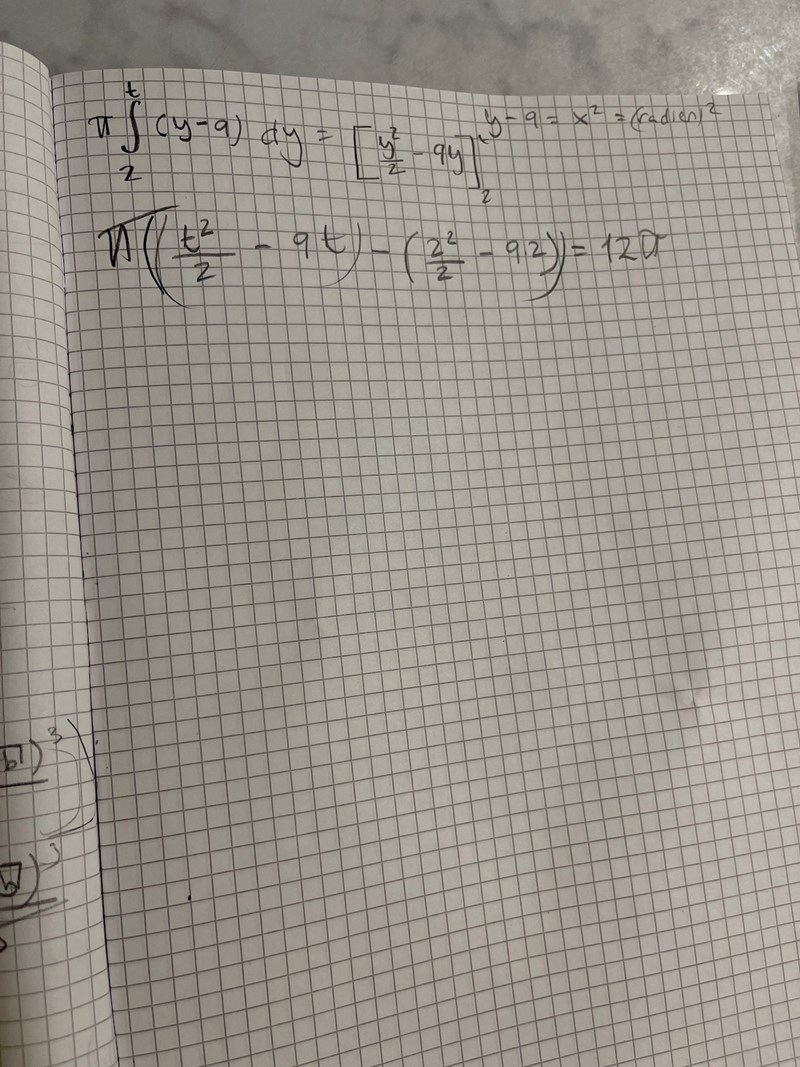 π∫₂ᵗ (y-9) dy = [y²/2 - 9y]₂ᵗ y-9 = x² = (radien)²
π((t²/2 - 9t) - (2²/2 - 9 2)) = 12π
)³
)³